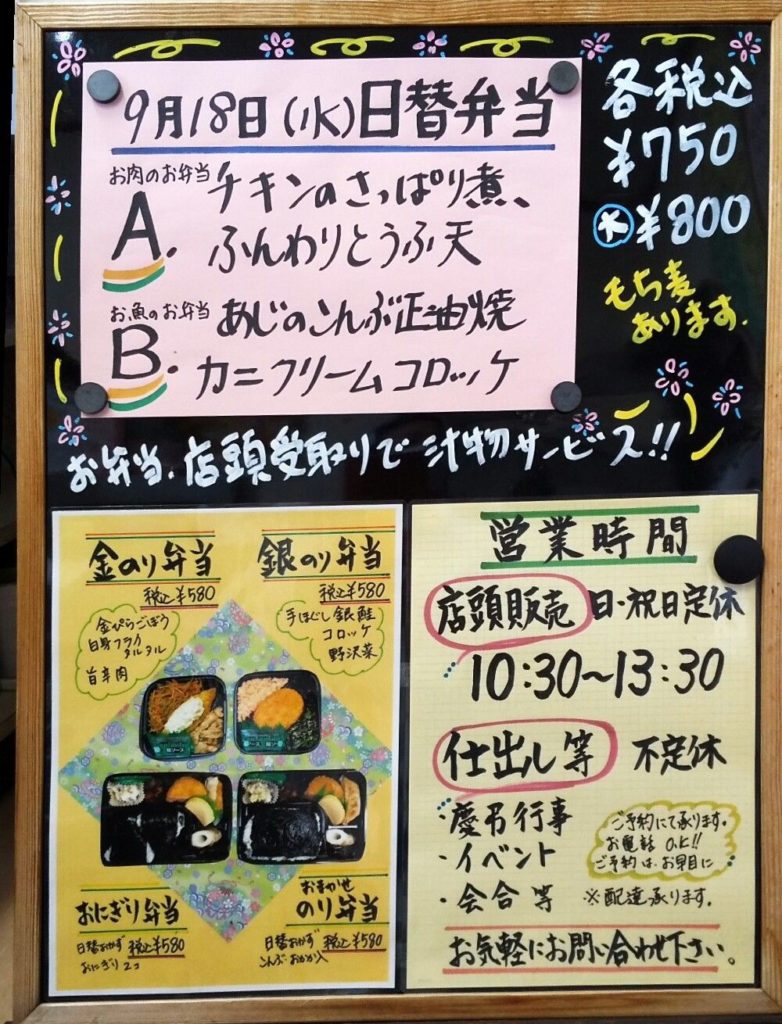 9月18日(水)日替弁当
お肉のお弁当
A.
チキンのさっぱり煮、
ふんわりとうふ天
お魚のお弁当
B.
あじのこんぶ正油焼
カニクリームコロッケ
各税込
¥750
大 ¥800
もち麦
あります.
お弁当、店頭受取りで 汁物サービス!!
金のり弁当
税込¥580
金ぴらごぼう
白身フライ
タルタル
旨辛肉
銀のり弁当
税込¥580
手ほぐし銀鮭
コロッケ
野沢菜
おにぎり弁当
日替おかず 税込¥580
おにぎり2コ
おまかせ
のり弁当
日替おかず 税込¥580
こんぶ・おかか入
営業時間
店頭販売 日・祝日定休
10:30~13:30
仕出し等 不定休
・慶弔行事
・イベント
・会合等
ご予約にて承ります。
お電話OK!!
ご予約は、お早目に
※配達承ります。
お気軽にお問い合わせ下さい。